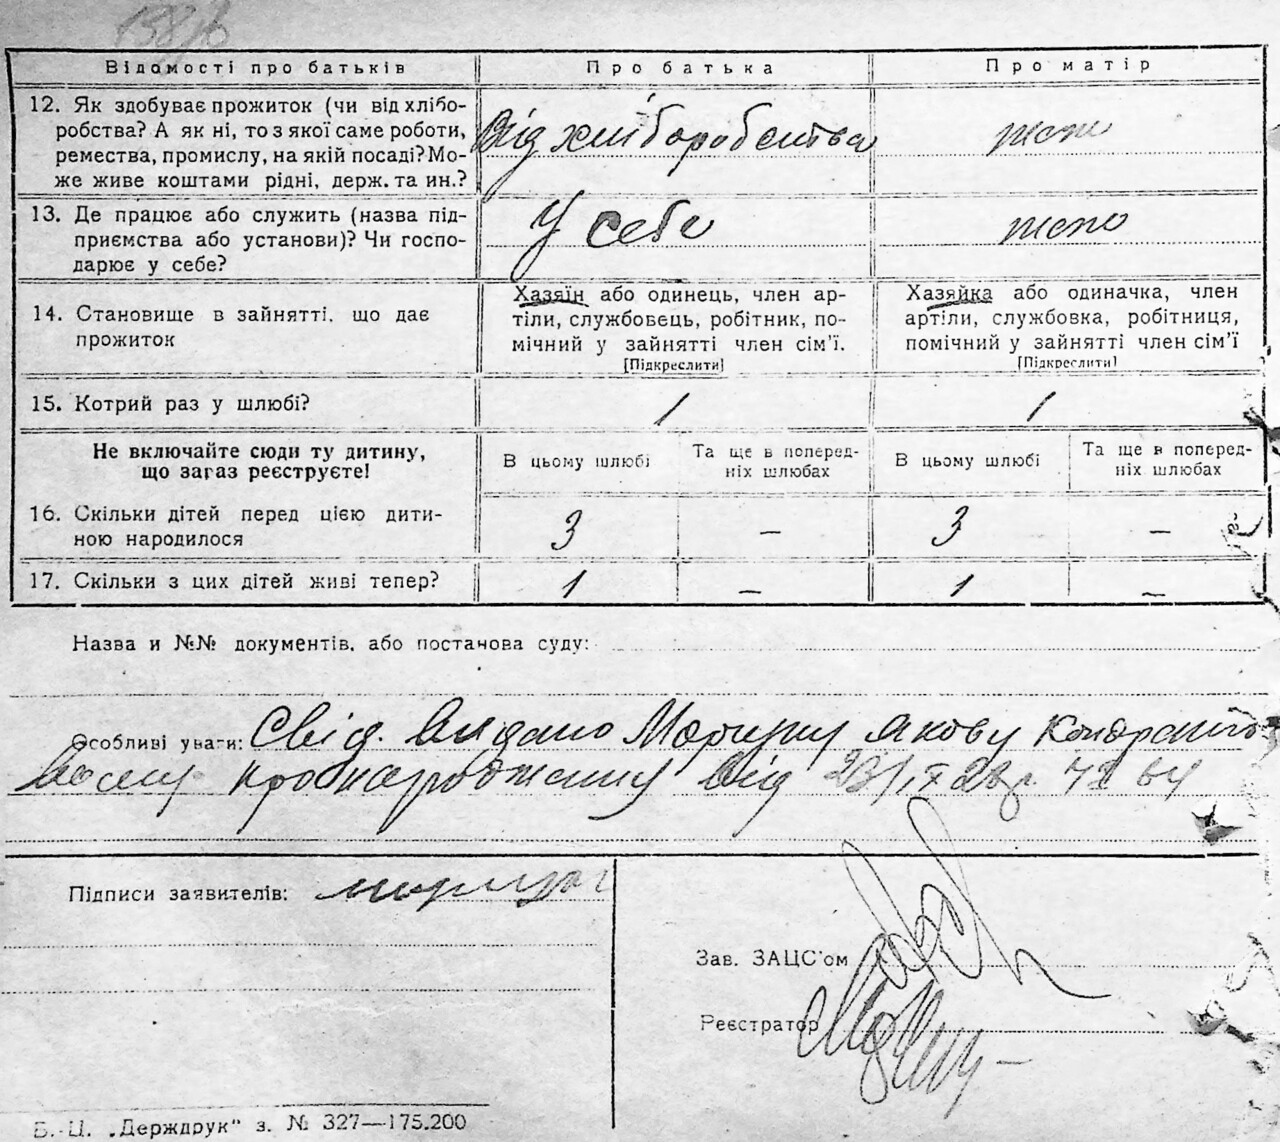 Відомості про батьків Про батька Про матір
12. Як здобуває прожиток (чи від хлібо-
робства? А як ні, то з якої саме роботи,
ремества, промислу, на якій посаді? Мо-
же живе коштами рідні, держ. та ин.?
Від хліборобства
тоже
13. Де працює або служить (назва під-
приємства або установи)? Чи госпо-
дарює у себе?
У себе
тоже
14. Становище в зайнятті, що дає
прожиток
Хазяїн або одинець, член ар-
тіли, службовець, робітник, по-
мічний у зайнятті член сім'ї.
[Підкреслити]
Хазяйка або одиначка, член
артіли, службовка, робітниця,
помічний у зайнятті член сім'ї
[Підкреслити]
15. Котрий раз у шлюбі? 1 1
Не включайте сюди ту дитину,
що загаз реєструєте!
В цьому шлюбі
Та ще в поперед-
ніх шлюбах
В цьому шлюбі
Та ще в поперед-
ніх шлюбах
16. Скільки дітей перед цією дити-
ною народилося
3 — 3 —
17. Скільки з цих дітей живі тепер? 1 — 1 —
Назва и №№ документів, або постанова суду:
Особливі уваги: Свід. Видано Якову
про народження від
Підписи заявителів:
Зав. ЗАЦС'ом
Реєстратор
Б.-Ц. „Держдрук" з. № 327—175.200